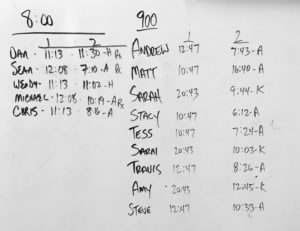 8:00
1 2
DAN · 11:13 · 11:30-H Rx
SEAN · 12:08 · 7:10-A Rx
WENDY · 11:13 · 11:02-H
MICHAEL · 12:08 · 10:19-A Rx
CHRIS · 11:13 8:16-A
900
1 2
ANDREW 12:47 7:43-A
MATT 10:47 16:40-A
SARAH 20:43 9:44-K
STACY 10:47 6:12-A
TESS 10:47 7:24-A
SARNI 20:43 10:03-K
TRAVIS 12:47 8:26-A
AMY 20:43 12:45-K
STEVE 12:47 10:33-A